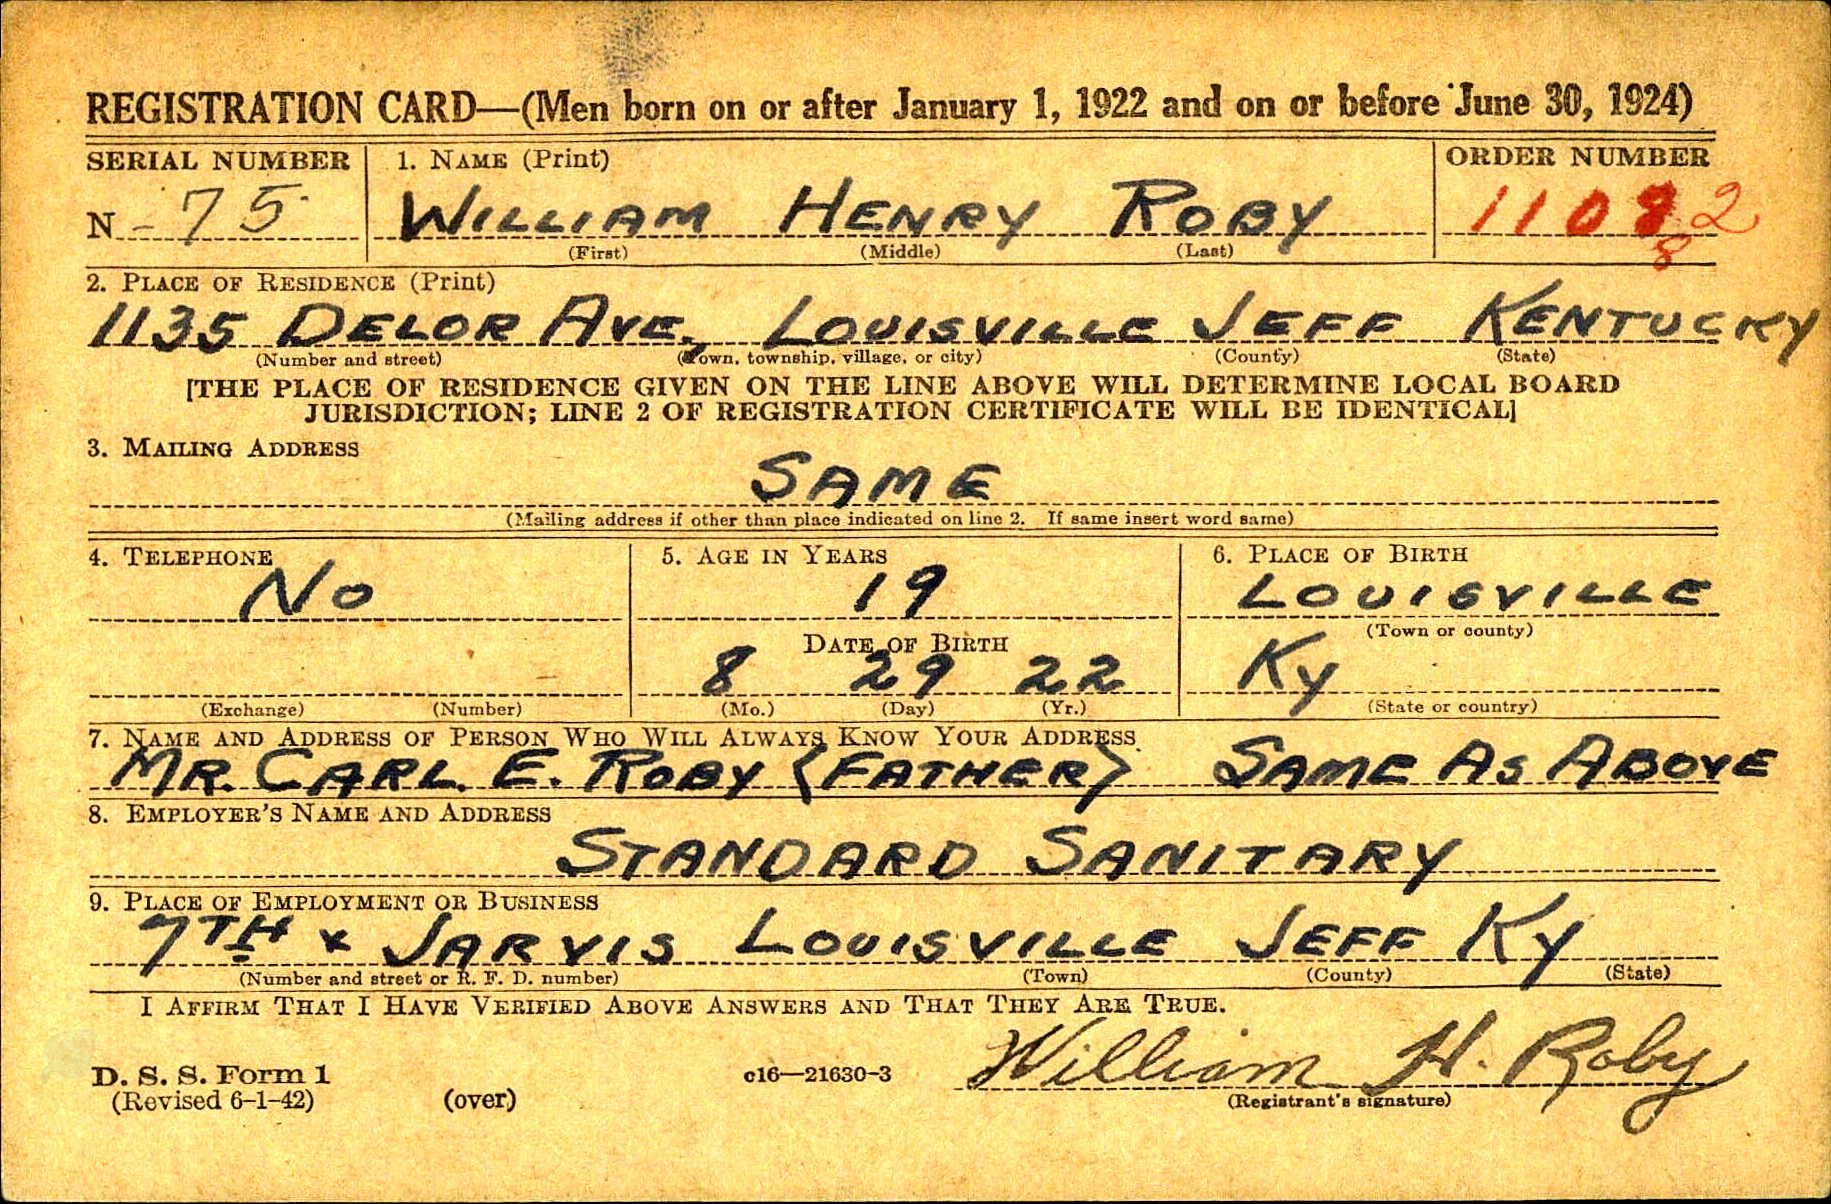 REGISTRATION CARD—(Men born on or after January 1, 1922 and on or before June 30, 1924)
SERIAL NUMBER 1. NAME (Print) ORDER NUMBER
N - 75 WILLIAM HENRY ROBY 110
(First) (Middle) (Last)
2. PLACE OF RESIDENCE (Print)
1135 DELOR AVE., LOUISVILLE JEFF KENTUCKY
(Number and street) (Town, township, village, or city) (County) (State)
[THE PLACE OF RESIDENCE GIVEN ON THE LINE ABOVE WILL DETERMINE LOCAL BOARD
JURISDICTION; LINE 2 OF REGISTRATION CERTIFICATE WILL BE IDENTICAL]
3. MAILING ADDRESS
SAME
(Mailing address if other than place indicated on line 2. If same insert word same)
4. TELEPHONE 5. AGE IN YEARS 6. PLACE OF BIRTH
NO 19 LOUISVILLE
DATE OF BIRTH (Town or county)
8 29 22 KY
(Exchange) (Number) (Mo.) (Day) (Yr.) (State or country)
7. NAME AND ADDRESS OF PERSON WHO WILL ALWAYS KNOW YOUR ADDRESS
MR. CARL. E. ROBY (FATHER) SAME AS ABOVE
8. EMPLOYER'S NAME AND ADDRESS
STANDARD SANITARY
9. PLACE OF EMPLOYMENT OR BUSINESS
7TH & JARVIS LOUISVILLE JEFF KY
(Number and street or R. F. D. number) (Town) (County) (State)
I AFFIRM THAT I HAVE VERIFIED ABOVE ANSWERS AND THAT THEY ARE TRUE.
D. S. S. Form 1 c16—21630-3 William H. Roby
(Revised 6-1-42) (over) (Registrant's signature)